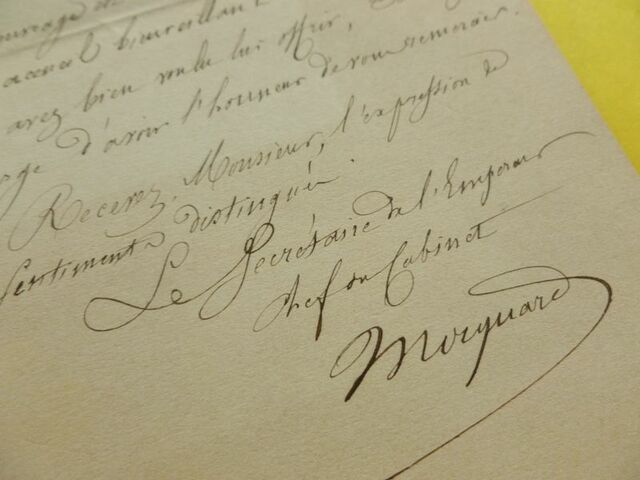 ouvrage de
accueil bienveillant
avez bien voulu lui offrir,
d'avoir l'honneur de vous remercier.
Recevez, Monsieur, l'expression de
sentiments distingués.
Le Secrétaire de l'Empereur
chef du Cabinet
Mocquard